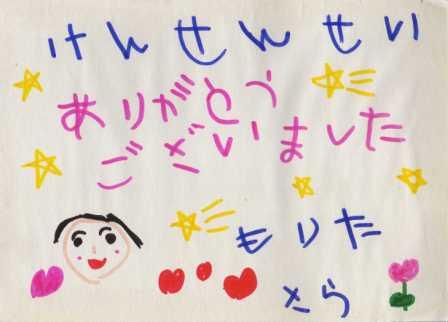 けんせんせい
ありがとう
ございました
もりた
さら